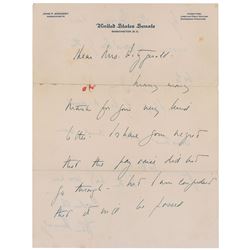 JOHN F. KENNEDY
MASSACHUSETTS
United States Senate
WASHINGTON, D.C.
Dear Mrs. Fitzgerald -
Many many
thanks for your very kind
letter. I share your regret
that the pay raise did not
go through - but I am confident
that it will be passed